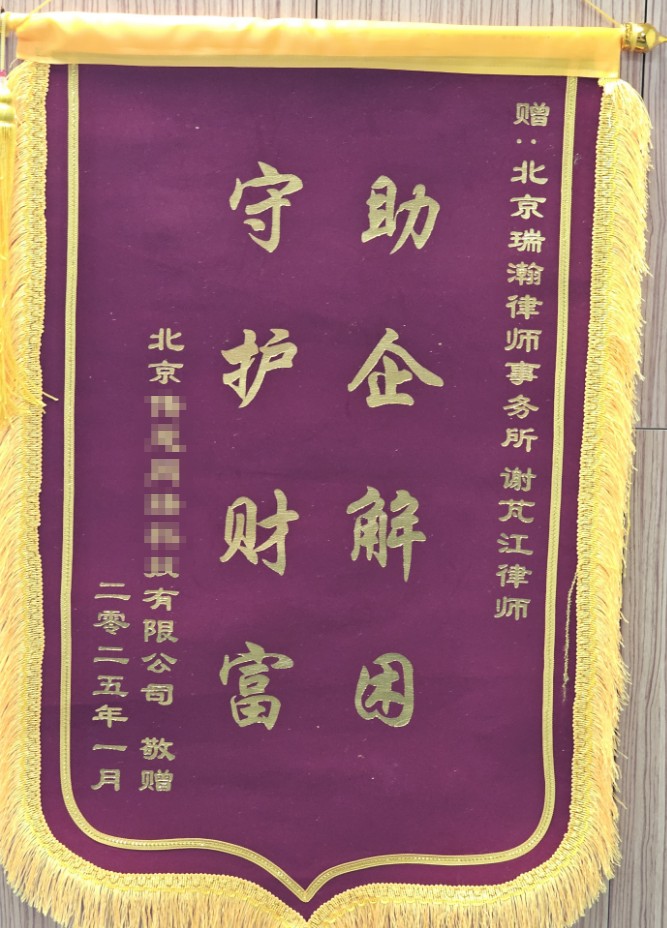 赠:北京瑞瀚律师事务所 谢芃江律师
助企解困
守护财富
北京 有限公司 敬赠
二零二五年一月